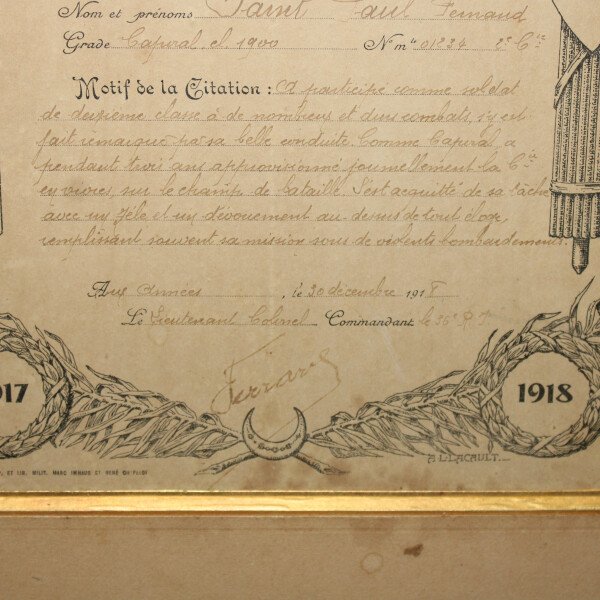 Nom et prénoms Saint Paul Fernand
Grade Caporal cl 1900 N mle 01234 2e Cie
Motif de la Citation : A participé comme soldat
de deuxième classe à de nombreux et durs combats, s'y est
fait remarqué par sa belle conduite. Comme Caporal, a
pendant trois ans approvisionné journellement la Cie
en vivres, sur le champ de bataille. S'est acquitté de sa tâche
avec un zèle et un dévouement au-dessus de tout éloge,
remplissant souvent sa mission sous de violents bombardements.
Aux Armées, le 30 décembre 1918
Le Lieutenant Colonel Commandant le 36e
1917 1918
B. L. LACAULT
ET LIB. MILIT. MARC IMHAUS ET RENÉ CHAPELOT